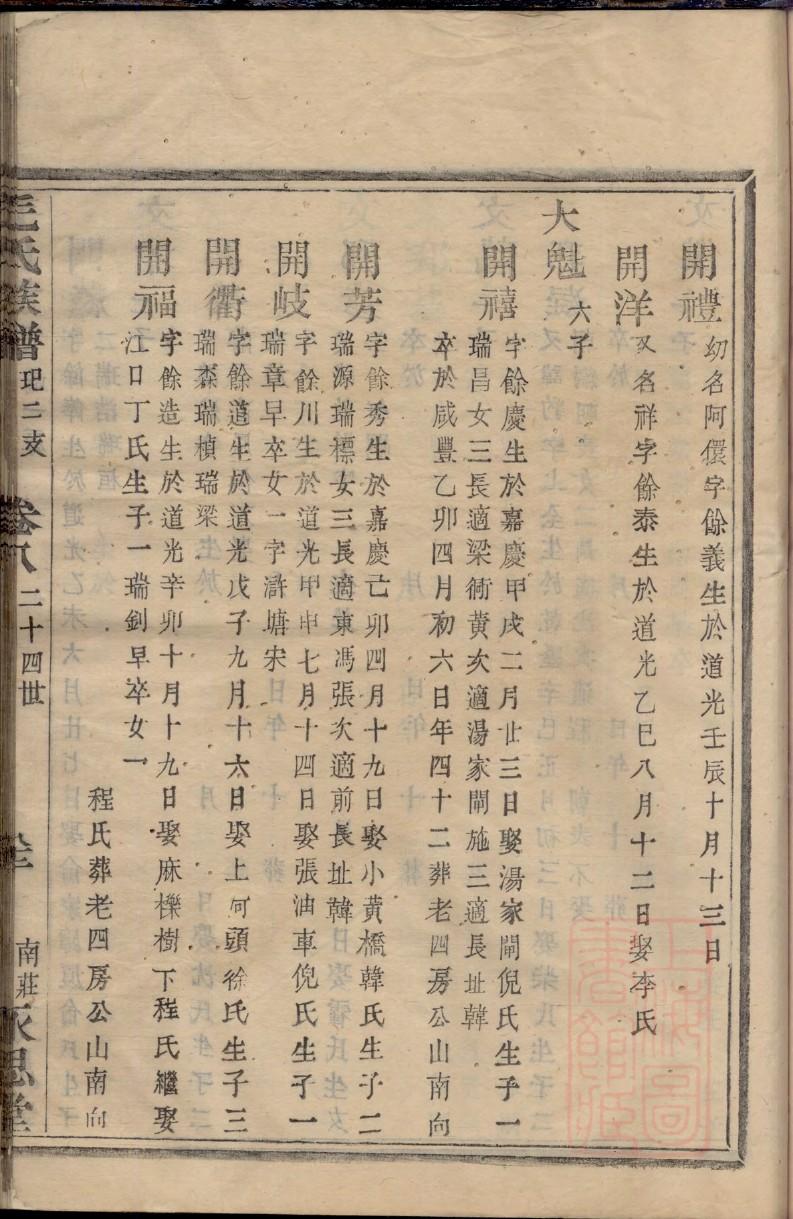 開禮 幼名阿儇字餘義生於道光壬辰十月十三日
開洋 又名祥字餘泰生於道光乙巳八月十二日娶李氏
大魁 六子
開禧 字餘慶生於嘉慶甲戌二月廿三日娶湯家閘倪氏生子一
瑞昌女三長適梁衕黃次適湯家閘施三適長址韓
卒於咸豐乙卯四月初六日年四十二葬老四房公山南向
開芳 字餘秀生於嘉慶己卯四月十九日娶小黃橋韓氏生子二
瑞源瑞標女三長適東馮張次適前長址韓
開岐 字餘川生於道光甲申七月十四日娶張油車倪氏生子一
瑞章早卒女一字滸塘宋
開衢 字餘道生於道光戊子九月十六日娶上何頭徐氏生子三
瑞森瑞楨瑞梁
開福 字餘造生於道光辛卯十月十九日娶麻櫟樹下程氏繼娶
江口丁氏生子一瑞釗早卒女一
程氏葬老四房公山南向
毛氏族譜 玘三支 卷八 二十四世 南莊 永思堂